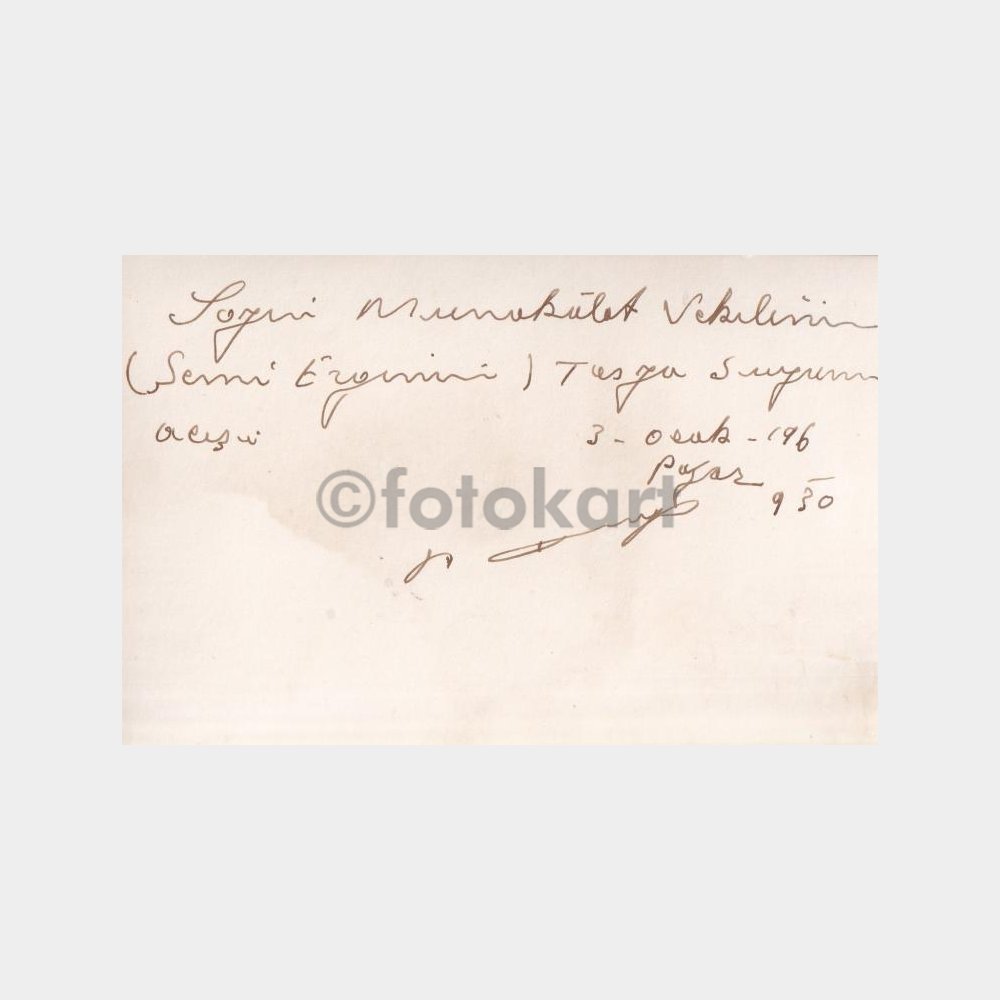 Sayın Munakalet Vekilinin
(Semi Erginin) Tasya Suyunun
açışı 3 - ocak - 196
Pazar
9 30
©fotokart